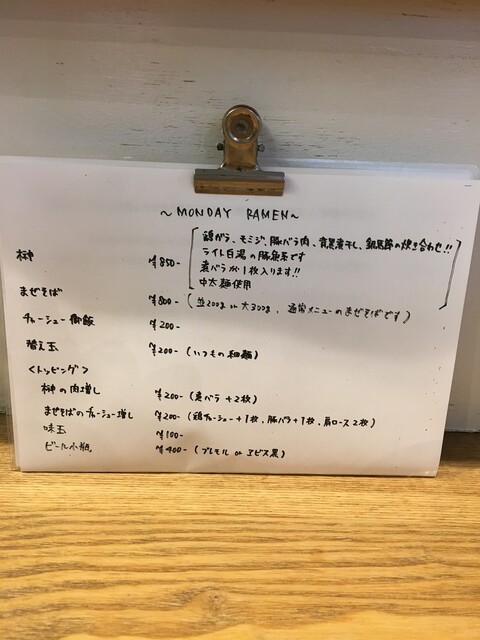 ～MONDAY RAMEN～
榊 ¥850-
鶏ガラ、モミジ、豚バラ肉、背黒煮干し、鯛馬節の炊き合わせ!!
ライト白湯の豚魚系です
煮バラが1枚入ります!!
中太麺使用
まぜそば ¥800- (並200g or 大300g、通常メニューのまぜそばです)
チャーシュー御飯 ¥200-
替え玉 ¥200- (いつもの細麺)
<トッピング>
榊の肉増し ¥200- (煮バラ+2枚)
まぜそばのチャーシュー増し ¥200- (鶏チャーシュー+1枚、豚バラ+1枚、肩ロース2枚)
味玉 ¥100-
ビール小瓶 ¥400- (プレモル or ヱビス黒)